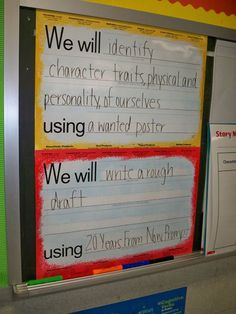 We will identify
character traits, physical, and
personality, of ourselves
using a wanted poster
We will write a rough
draft
using 20 Years From Now
Story